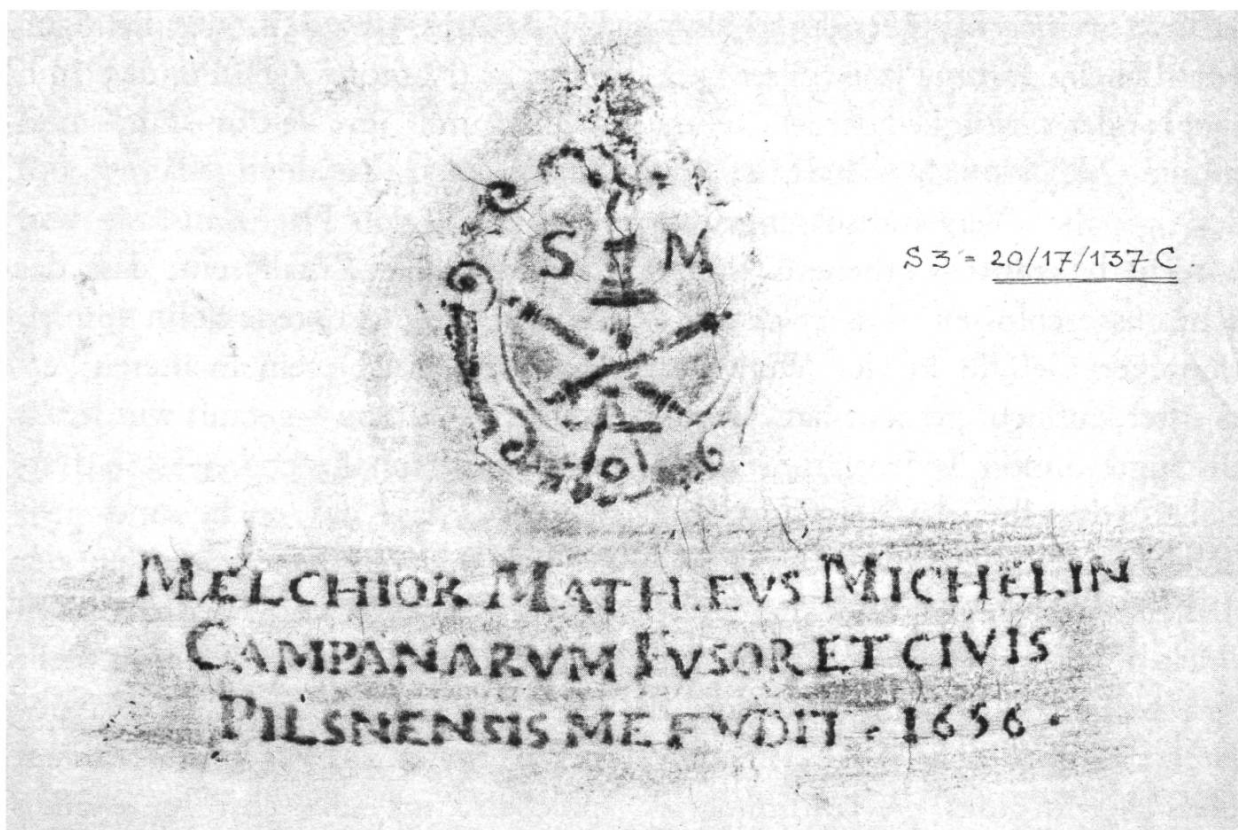 S M
S 3 = 20/17/137 C.
MELCHIOR MATHEVS MICHELIN
CAMPANARVM FVSOR ET CIVIS
PILSNENSIS ME FVDIT · 1656 ·